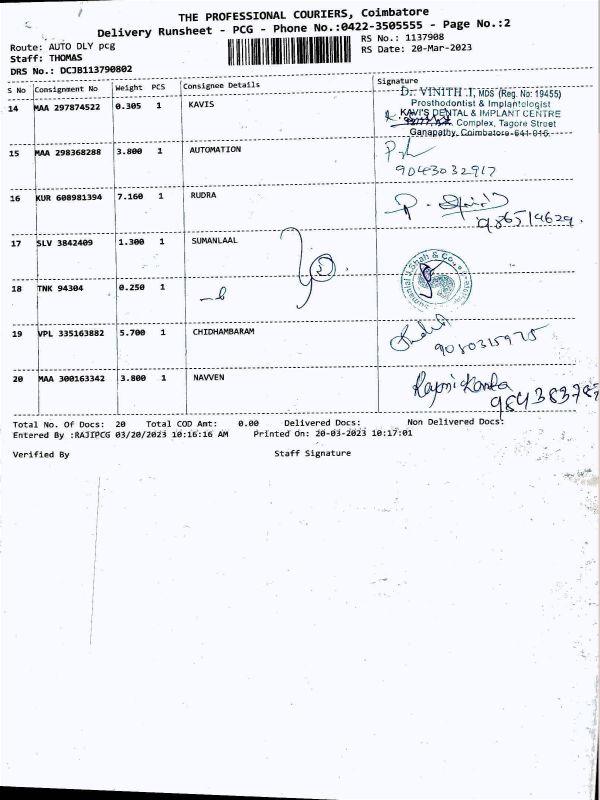 THE PROFESSIONAL COURIERS, Coimbatore
Delivery Runsheet - PCG - Phone No.:0422-3505555 - Page No.:2
Route: AUTO DLY pcg
RS No.: 1137908
Staff: THOMAS
RS Date: 20-Mar-2023
DRS No.: DCJB113790802
S No Consignment No Weight PCS Consignee Details Signature
14 MAA 297874522 0.305 1 KAVIS
Dr. VINITH .I, MDS (Reg. No: 19455)
Prosthodontist & Implantologist
KAVI'S DENTAL & IMPLANT CENTRE
Complex, Tagore Street
Ganapathy, Coimbatore-641 016.
15 MAA 298368288 3.800 1 AUTOMATION
9043032917
16 KUR 608981394 7.160 1 RUDRA
17 SLV 3842409 1.300 1 SUMANLAAL
18 TNK 94304 0.250 1
19 VPL 335163882 5.700 1 CHIDHAMBARAM
20 MAA 300163342 3.800 1 NAVVEN
Total No. Of Docs: 20 Total COD Amt: 0.00 Delivered Docs: Non Delivered Docs:
Entered By :RAJIPCG 03/20/2023 10:16:16 AM Printed On: 20-03-2023 10:17:01
Verified By Staff Signature